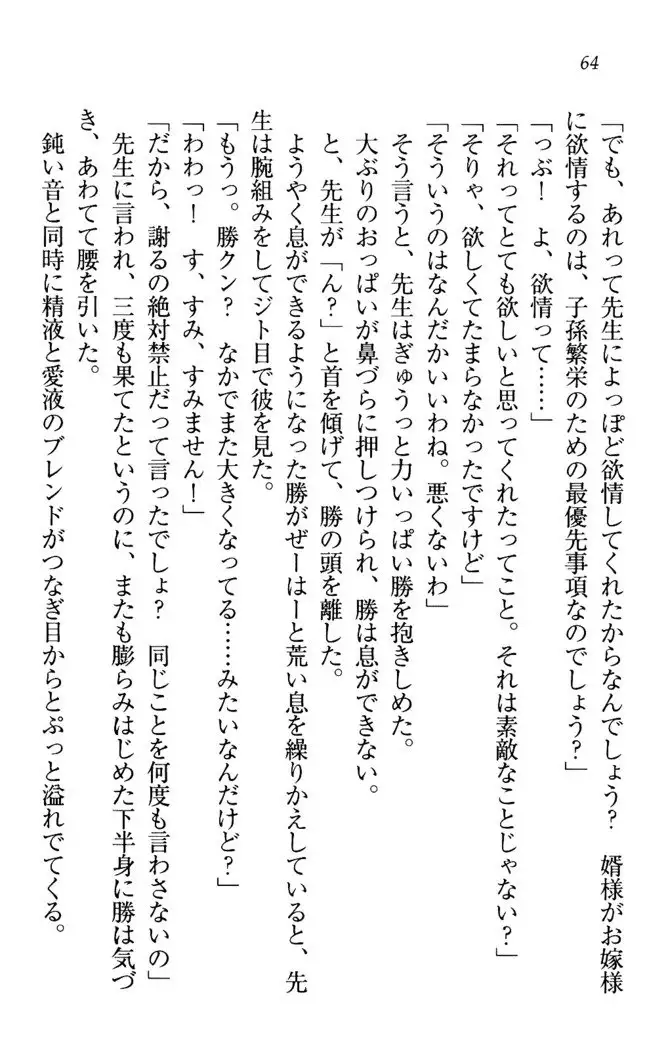 64
「でも、あれって先生によっぽど欲情してくれたからなんでしょう？　婿様がお嫁様
に欲情するのは、子孫繁栄のための最優先事項なのでしょう？」
「っぶ！　よ、欲情って……」
「それってとても欲しいと思ってくれたってこと。それは素敵なことじゃない？」
「そりゃ、欲しくてたまらなかったですけど」
「そういうのはなんだかいいわね。悪くないわ」
そう言うと、先生はぎゅうっと力いっぱい勝を抱きしめた。
大ぶりのおっぱいが鼻づらに押しつけられ、勝は息ができない。
と、先生が「ん？」と首を傾げて、勝の頭を離した。
ようやく息ができるようになった勝がぜーはーと荒い息を繰りかえしていると、先
生は腕組みをしてジト目で彼を見た。
「もうっ。勝クン？　なかでまた大きくなってる……みたいなんだけど？」
「わわっ！　す、すみ、すみません！」
「だから、謝るの絶対禁止だって言ったでしょ？　同じことを何度も言わさないの」
先生に言われ、三度も果てたというのに、またも膨らみはじめた下半身に勝は気づ
き、あわてて腰を引いた。
鈍い音と同時に精液と愛液のブレンドがつなぎ目からとぷっと溢れでてくる。